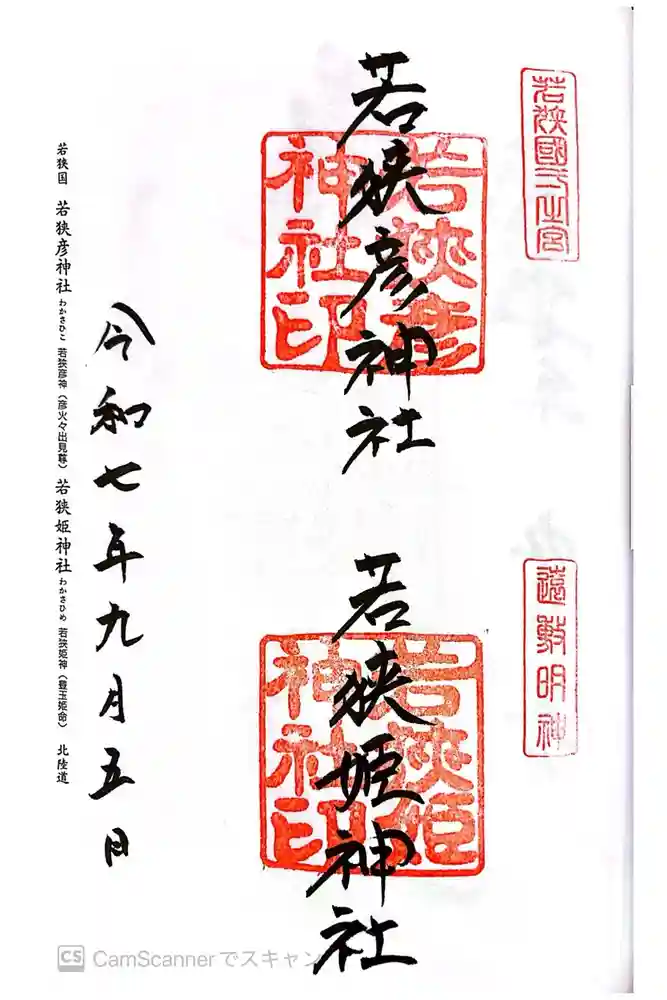 若狭國一之宮
遠敷明神
若狭彦神社
若狭彦神社印
若狭姫神社
若狭姫神社印
令和七年九月五日
若狭国 若狭彦神社 わかさひこ 若狭彦神（彦火々出見尊） 若狭姫神社 わかさひめ 若狭姫神（豊玉姫命） 北陸道
CS CamScannerでスキャン